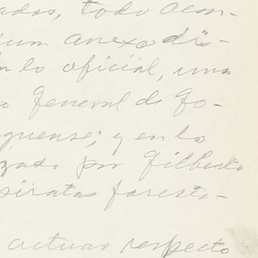 adas, todo acom-
um anexo di-
n lo oficial, una
o General de Go-
guense; y en lo
zada por Gilberto
piratas foresta-
actuar respecto